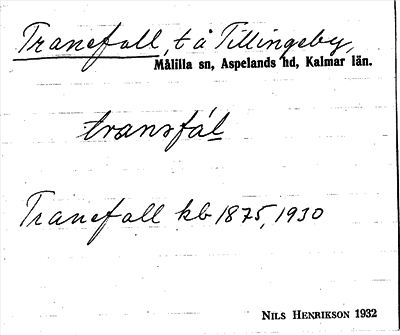 Tranefall, t å Tillingeby,
Målilla sn, Aspelands hd, Kalmar län.
transfál
Tranefall kb 1875, 1930
NILS HENRIKSON 1932